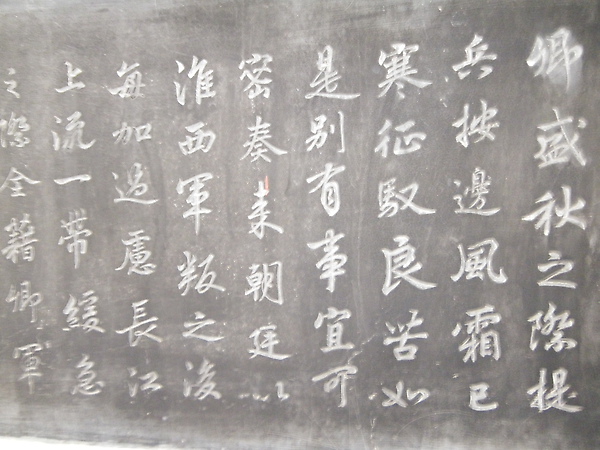 卿盛秋之際提
兵按邊風霜已
寒征馭良苦如
是別有事宜可
密奏來朝廷以
淮西軍叛之後
每加過慮長江
上流一帶緩急
之際全藉卿軍